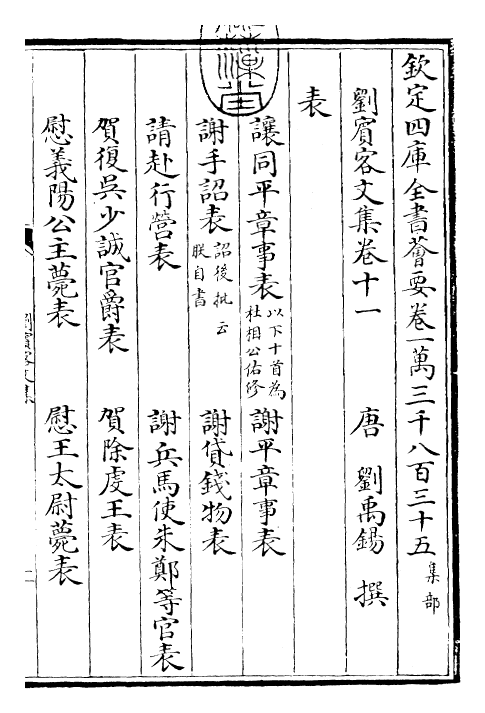 欽定四庫全書薈要卷一萬三千八百三十五 集部
劉賓客文集卷十一 唐 劉禹錫 撰
表
讓同平章事表 以下十首為杜相公佑修 謝平章事表
謝手詔表 詔後批云朕自書 謝貸錢物表
請赴行營表 謝兵馬使朱鄭等官表
賀復吳少誠官爵表 賀除虔王表
慰義陽公主薨表 慰王太尉薨表
劉賓客文集